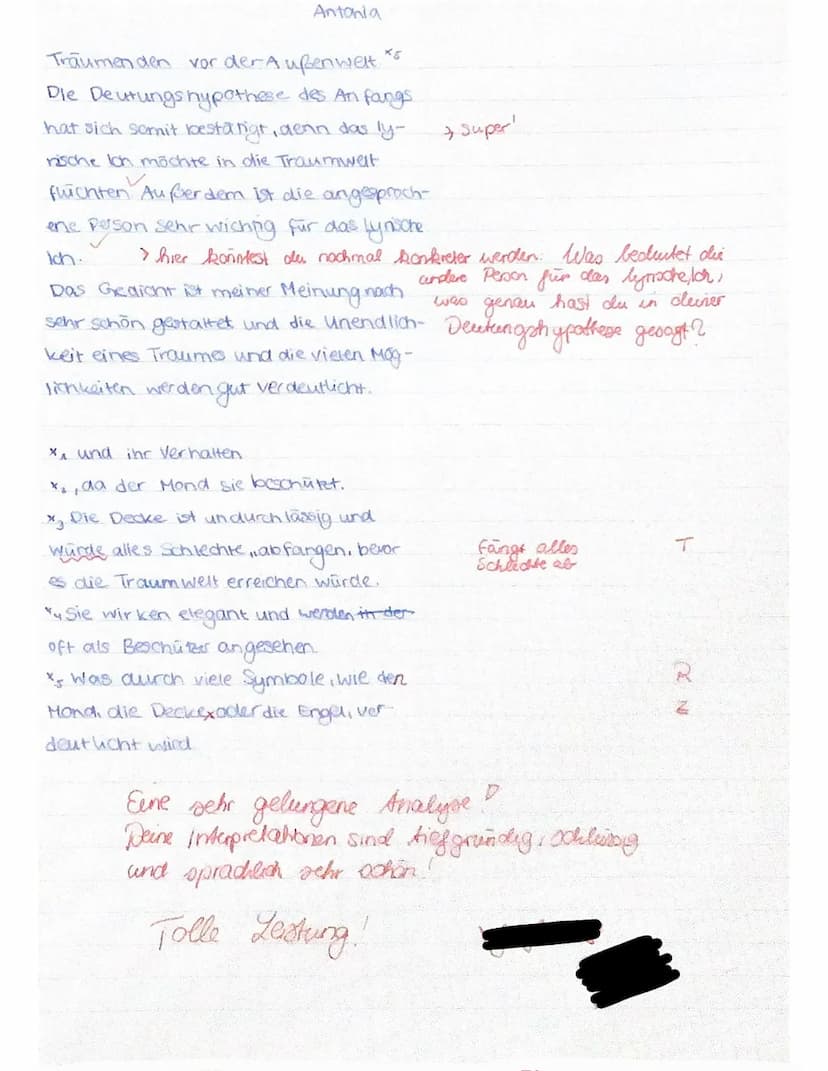 Antonia
Träumenden vor der Außenwelt ×5
Die Deutungshypothese des Anfangs
hat sich somit bestätigt, denn das ly-
→ super!
rische Ich möchte in die Traumwelt
flüchten ✓ Außerdem ist die angesproch-
ene Person sehr wichtig für das lyrische
Ich. ✓
> hier könntest du nochmal konkreter werden: Was bedeutet die
andere Person für das lyrische Ich,
was genau hast du in deiner
Deutungshypothese gesagt?
Das Gedicht ist meiner Meinung nach
sehr schön gestaltet und die Unendlich-
keit eines Traumes und die vielen Mög-
lichkeiten werden gut verdeutlicht.
×1 und ihr Verhalten
×2, da der Mond sie beschützt.
×3 Die Decke ist undurchlässig und
würde alles Schlechte „abfangen, bevor
fängt alles
Schlechte ab
T
es die Traumwelt erreichen würde.
×4 Sie wirken elegant und werden in der
oft als Beschützer angesehen.
×5 Was durch viele Symbole, wie den
R
Mond, die Decke oder die Engel, ver-
Z
deutlicht wird
Eine sehr gelungene Analyse!
Deine Interpretationen sind tiefgründig, schlüssig
und sprachlich sehr schön!
Tolle Leistung!